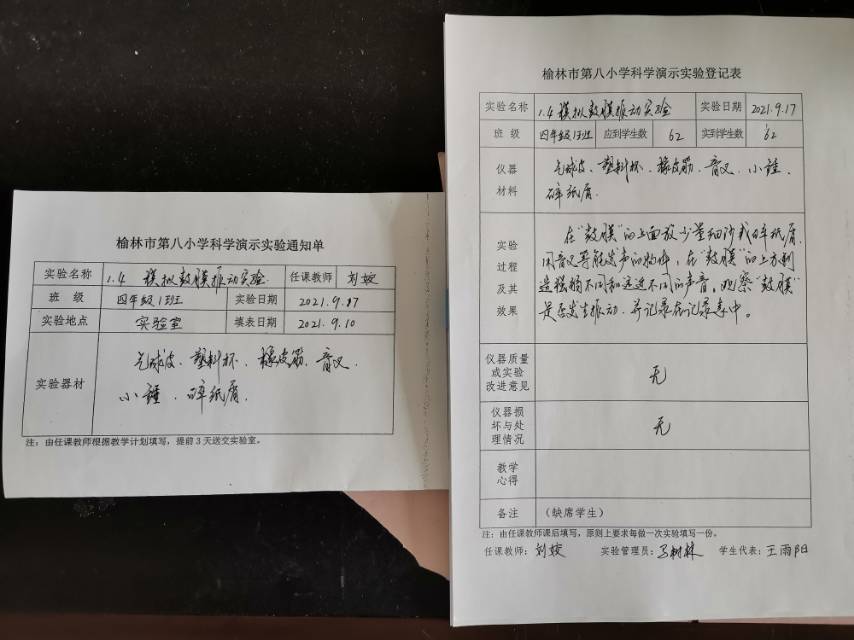 榆林市第八小学科学演示实验通知单
实验名称 1.4 模拟鼓膜振动实验 任课教师 刘姣
班 级 四年级1班 实验日期 2021.9.17
实验地点 实验室 填表日期 2021.9.10
实验器材
气球皮、塑料杯、橡皮筋、音叉、
小锤、碎纸屑.
注：由任课教师根据教学计划填写，提前3天送交实验室。
榆林市第八小学科学演示实验登记表
实验名称 1.4 模拟鼓膜振动实验 实验日期 2021.9.17
班 级 四年级1班 应到学生数 62 实到学生数 62
仪器
材料
气球皮、塑料杯、橡皮筋、音叉、小锤、
碎纸屑.
实验
过程
及其
效果
在“鼓膜”的上面放少量细沙或碎纸屑.
用音叉等能发声的物件，在“鼓膜”的上方制
造强弱不同和远近不同的声音。观察“鼓膜”
是否发生振动.并记录在记录表中。
仪器质量
或实验
改进意见
无
仪器损
坏与处
理情况
无
教学
心得
备注 （缺席学生）
注：由任课教师课后填写，原则上要求每做一次实验填写一份。
任课教师：刘姣 实验管理员：马树林 学生代表：王雨阳